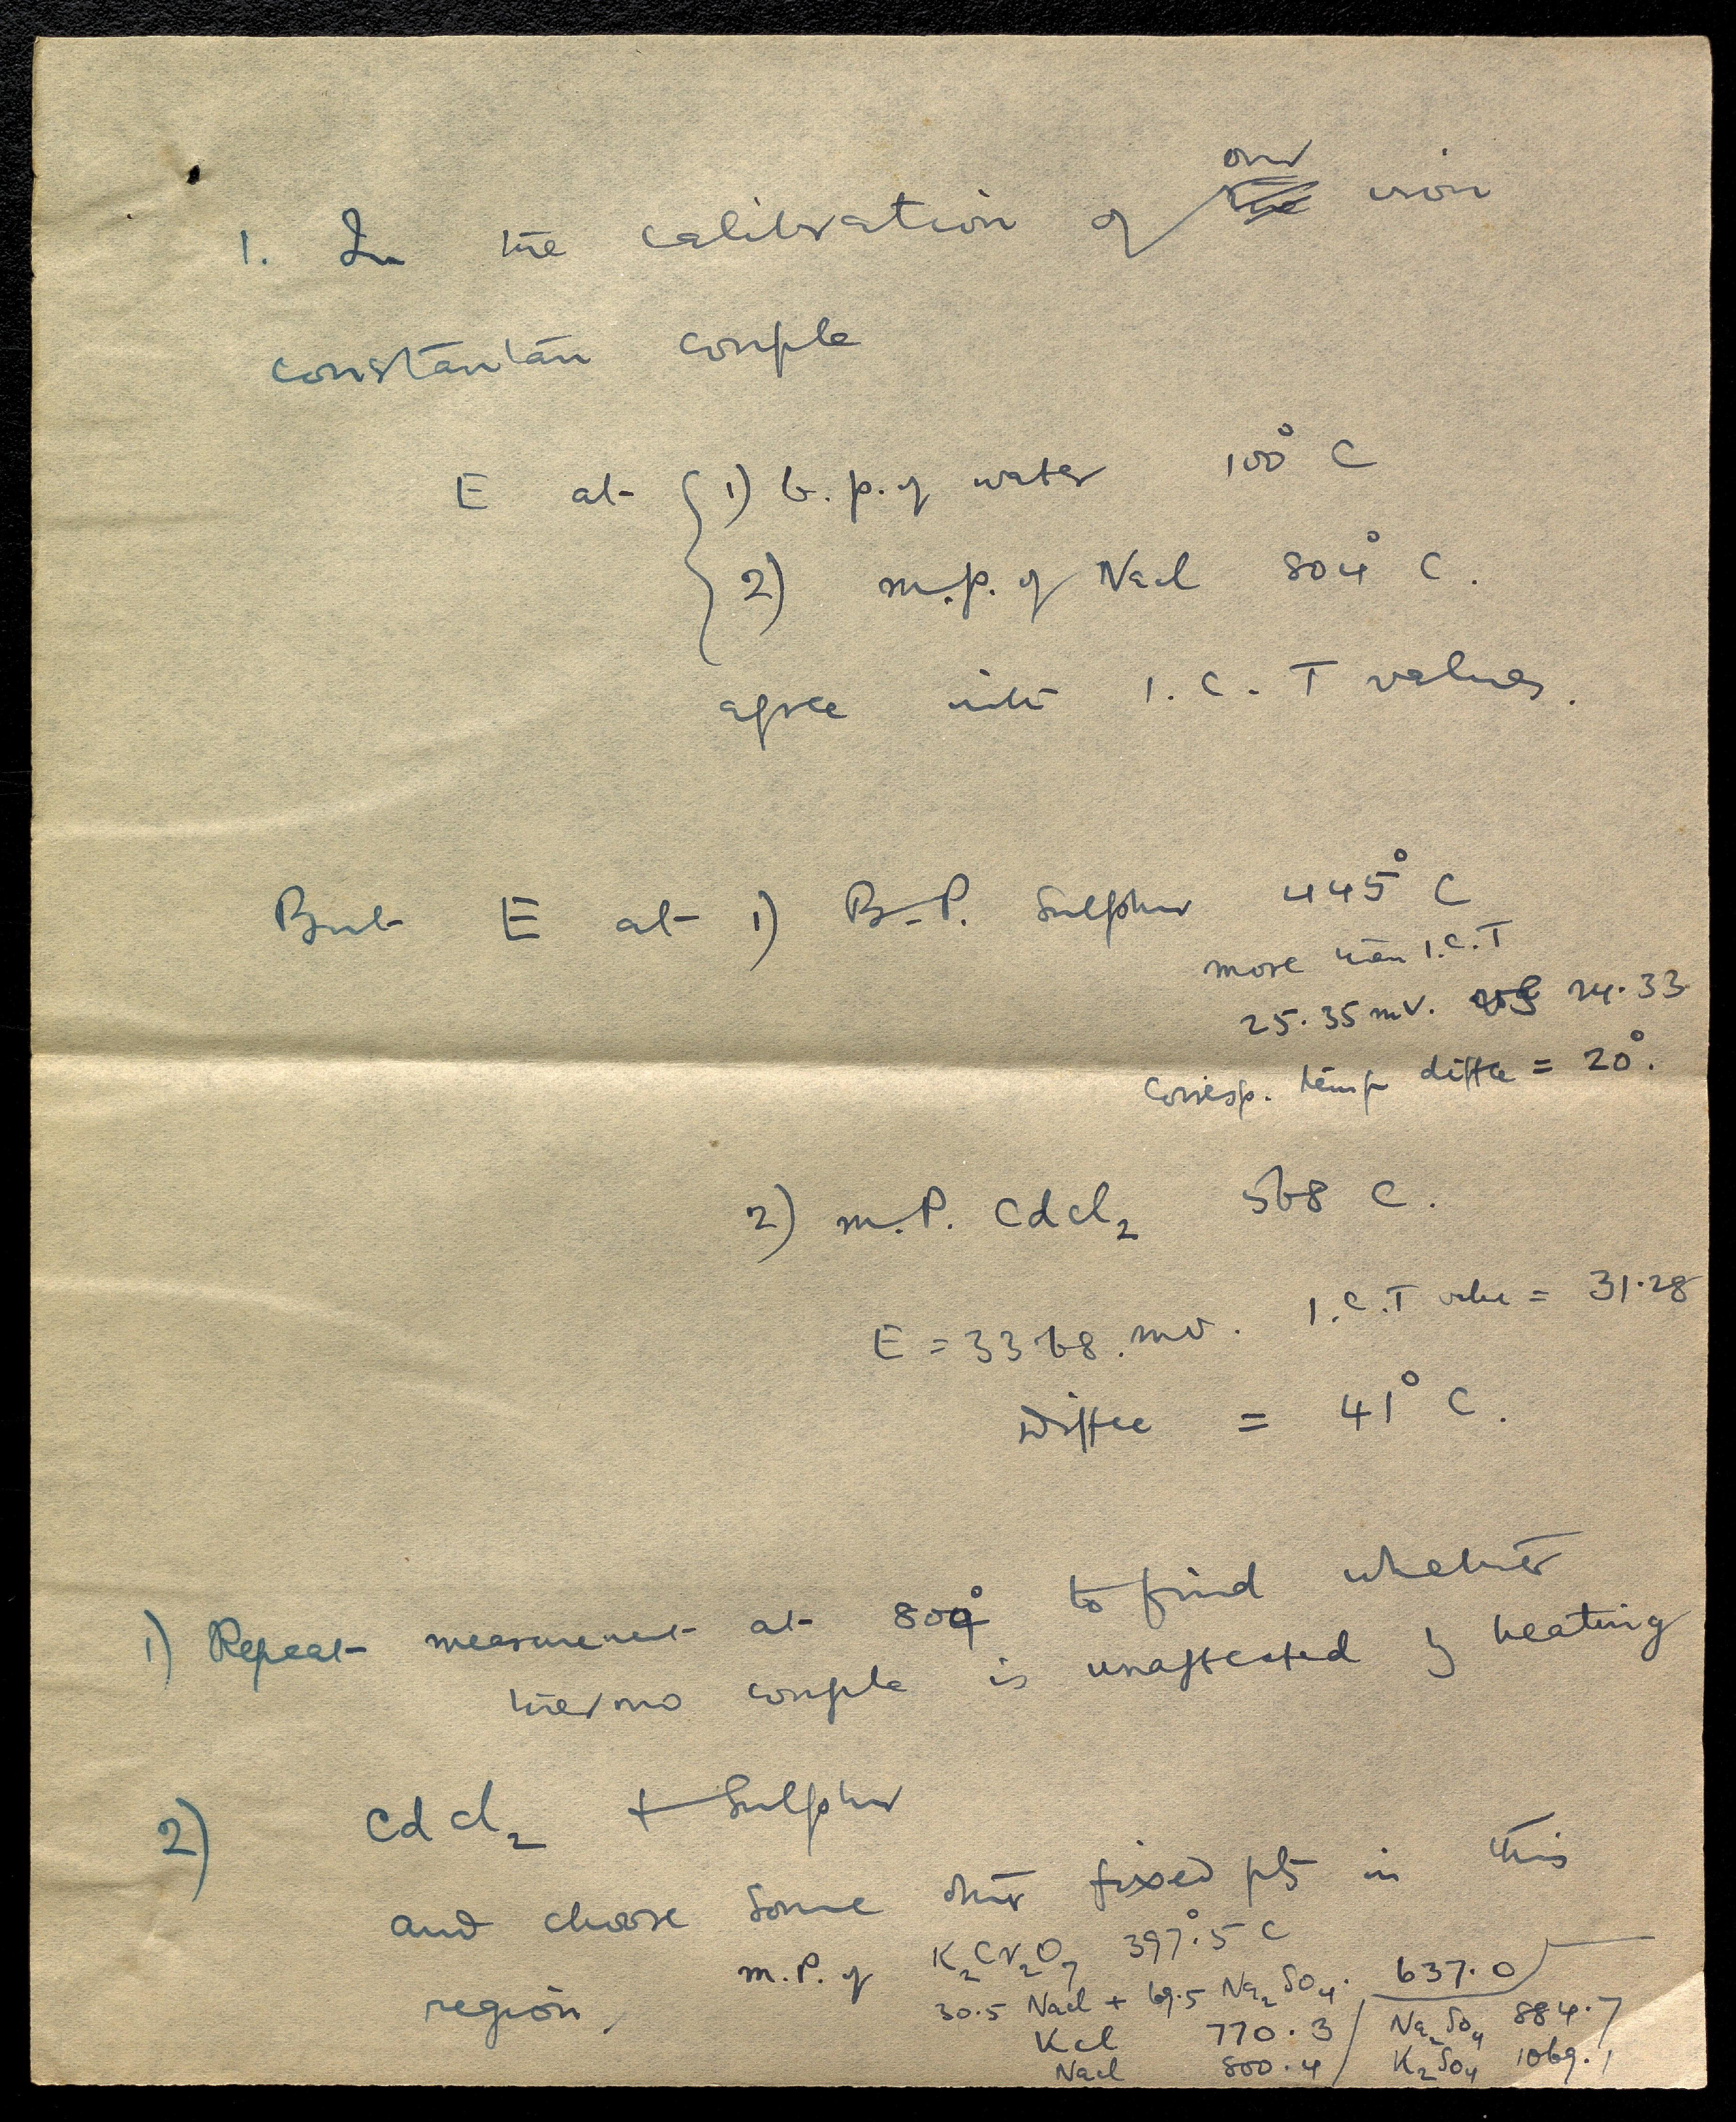 our
1. In the calibration of iron
constantan couple
E at 1) b.p. of water 100° C
2) m.p. of NaCl 804° C.
agree with I.C.T values.
But E at 1) B.P. Sulphur 445° C
more than I.C.T
25.35 mV. 24.33
corresp. temp diffce = 20°.
2) m.P. CdCl₂ 568 C.
E = 33.68 mv. I.C.T value = 31.28
Diffce = 41° C.
1) Repeat measurement at 804° to find whether
thermo couple is unaffected by heating
2) CdCl₂ + Sulphur
and choose some other fixed pts in this
region.
m.P. of K₂Cr₂O₇ 397.5° C
30.5 NaCl + 69.5 Na₂SO₄. 637.0
KCl 770.3 / Na₂SO₄ 884.7
NaCl 800.4 / K₂SO₄ 1069.1